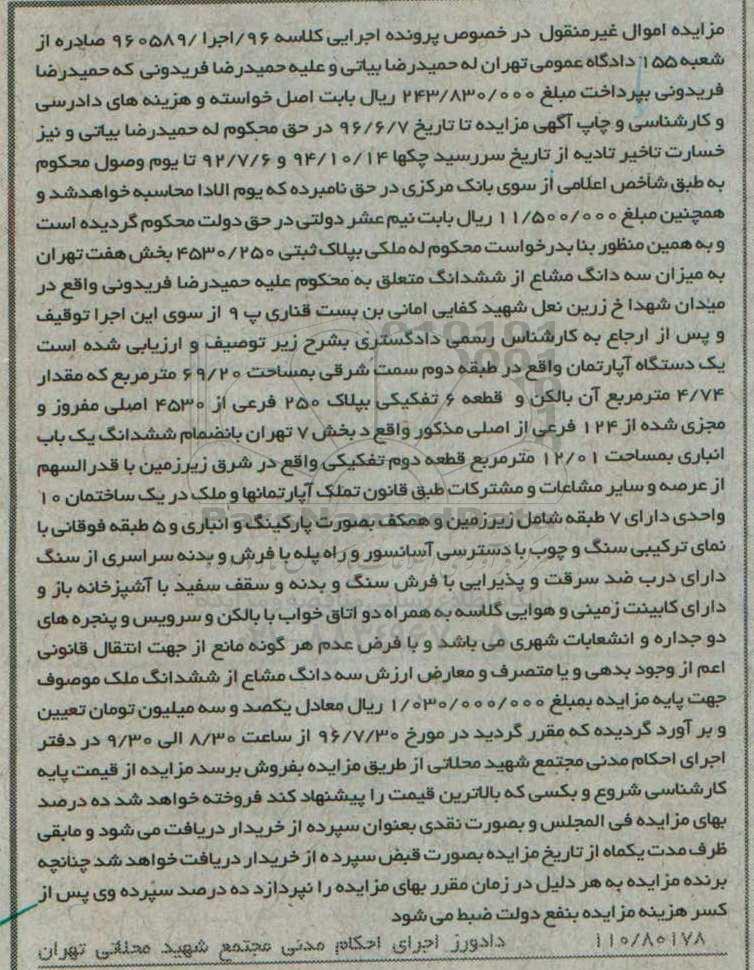 مزایده اموال غیرمنقول در خصوص پرونده اجرایی کلاسه ۹۶/اجرا /۹۶۰۵۸۹ صادره از
شعبه ۱۵۵ دادگاه عمومی تهران له حمیدرضا بیاتی و علیه حمیدرضا فریدونی که حمیدرضا
فریدونی بپرداخت مبلغ ۲۴۳/۸۳۰/۰۰۰ ریال بابت اصل خواسته و هزینه های دادرسی
و کارشناسی و چاپ آگهی مزایده تا تاریخ ۹۶/۶/۷ در حق محکوم له حمیدرضا بیاتی و نیز
خسارت تاخیر تادیه از تاریخ سررسید چکها ۹۴/۱۰/۱۴ و ۹۲/۷/۶ تا یوم وصول محکوم
به طبق شاخص اعلامی از سوی بانک مرکزی در حق نامبرده که یوم الادا محاسبه خواهدشد و
همچنین مبلغ ۱۱/۵۰۰/۰۰۰ ریال بابت نیم عشر دولتی در حق دولت محکوم گردیده است
و به همین منظور بنا بدرخواست محکوم له ملکی بپلاک ثبتی ۴۵۳۰/۲۵۰ بخش هفت تهران
به میزان سه دانگ مشاع از ششدانگ متعلق به محکوم علیه حمیدرضا فریدونی واقع در
میدان شهدا خ زرین نعل شهید کفایی امانی بن بست قناری پ ۹ از سوی این اجرا توقیف
و پس از ارجاع به کارشناس رسمی دادگستری بشرح زیر توصیف و ارزیابی شده است
یک دستگاه آپارتمان واقع در طبقه دوم سمت شرقی بمساحت ۶۹/۲۰ مترمربع که مقدار
۴/۷۴ مترمربع آن بالکن و قطعه ۶ تفکیکی بپلاک ۲۵۰ فرعی از ۴۵۳۰ اصلی مفروز و
مجزی شده از ۱۲۴ فرعی از اصلی مذکور واقع د بخش ۷ تهران بانضمام ششدانگ یک باب
انباری بمساحت ۱۲/۰۱ مترمربع قطعه دوم تفکیکی واقع در شرق زیرزمین با قدرالسهم
از عرصه و سایر مشاعات و مشترکات طبق قانون تملک آپارتمانها و ملک در یک ساختمان ۱۰
واحدی دارای ۷ طبقه شامل زیرزمین و همکف بصورت پارکینگ و انباری و ۵ طبقه فوقانی با
نمای ترکیبی سنگ و چوب با دسترسی آسانسور و راه پله با فرش و بدنه سراسری از سنگ
دارای درب ضد سرقت و پذیرایی با فرش سنگ و بدنه و سقف سفید با آشپزخانه باز و
دارای کابینت زمینی و هوایی گلاسه به همراه دو اتاق خواب با بالکن و سرویس و پنجره های
دو جداره و انشعابات شهری می باشد و با فرض عدم هر گونه مانع از جهت انتقال قانونی
اعم از وجود بدهی و یا متصرف و معارض ارزش سه دانگ مشاع از ششدانگ ملک موصوف
جهت پایه مزایده بمبلغ ۱/۰۳۰/۰۰۰/۰۰۰ ریال معادل یکصد و سه میلیون تومان تعیین
و بر آورد گردیده که مقرر گردید در مورخ ۹۶/۷/۳۰ از ساعت ۸/۳۰ الی ۹/۳۰ در دفتر
اجرای احکام مدنی مجتمع شهید محلاتی از طریق مزایده بفروش برسد مزایده از قیمت پایه
کارشناسی شروع و بکسی که بالاترین قیمت را پیشنهاد کند فروخته خواهد شد ده درصد
بهای مزایده فی المجلس و بصورت نقدی بعنوان سپرده از خریدار دریافت می شود و مابقی
ظرف مدت یکماه از تاریخ مزایده بصورت قبض سپرده از خریدار دریافت خواهد شد چنانچه
برنده مزایده به هر دلیل در زمان مقرر بهای مزایده را نپردازد ده درصد سپرده وی پس از
کسر هزینه مزایده بنفع دولت ضبط می شود
۱۱۰/۸۰۱۷۸ دادورز اجرای احکام مدنی مجتمع شهید محلاتی تهران